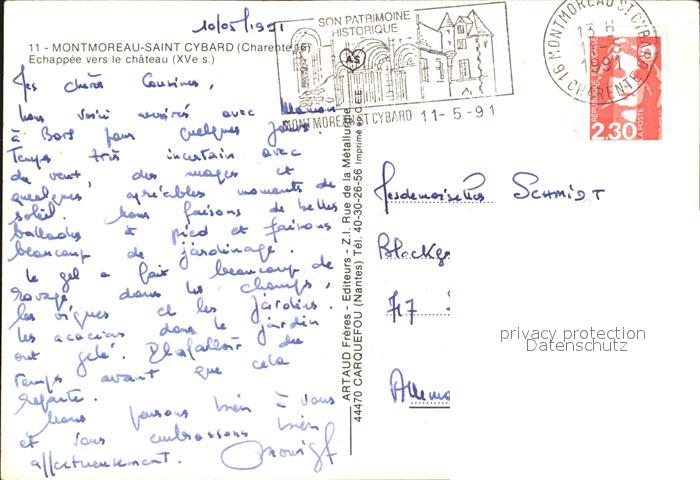 10/05/1991
11 - MONTMOREAU-SAINT CYBARD (Charente 16)
Echappée vers le château (XVe s.)
SON PATRIMOINE
HISTORIQUE
MONTMOREAU ST CYBARD 11-5-91
16 MONTMOREAU ST CYBARD
CHARENTE
REPUBLIQUE FRANÇAISE
2,30
LA POSTE
Mes chères Cousines,
Nous voici arrivés avec Maman
à Bors pour quelques jours.
Temps très incertain avec
du vent, des nuages et
quelques agréables moments de
soleil. Nous faisons de belles
ballades à pied et faisons
beaucoup de jardinage.
Le gel a fait beaucoup de
ravage dans les champs,
les vignes et les jardins.
Les acacias dans le jardin
ont gelé. Il va falloir du
temps avant que cela
reparte.
Nous pensons bien à vous
et vous embrassons bien
affectueusement.
ARTAUD Frères - Editeurs - Z.I. Rue de la Métallurgie
44470 CARQUEFOU (Nantes) Tél. 40-30-26-56 Imprimé en CEE
Mesdemoiselles SCHMIDT
717
Allema
privacy protection
Datenschutz